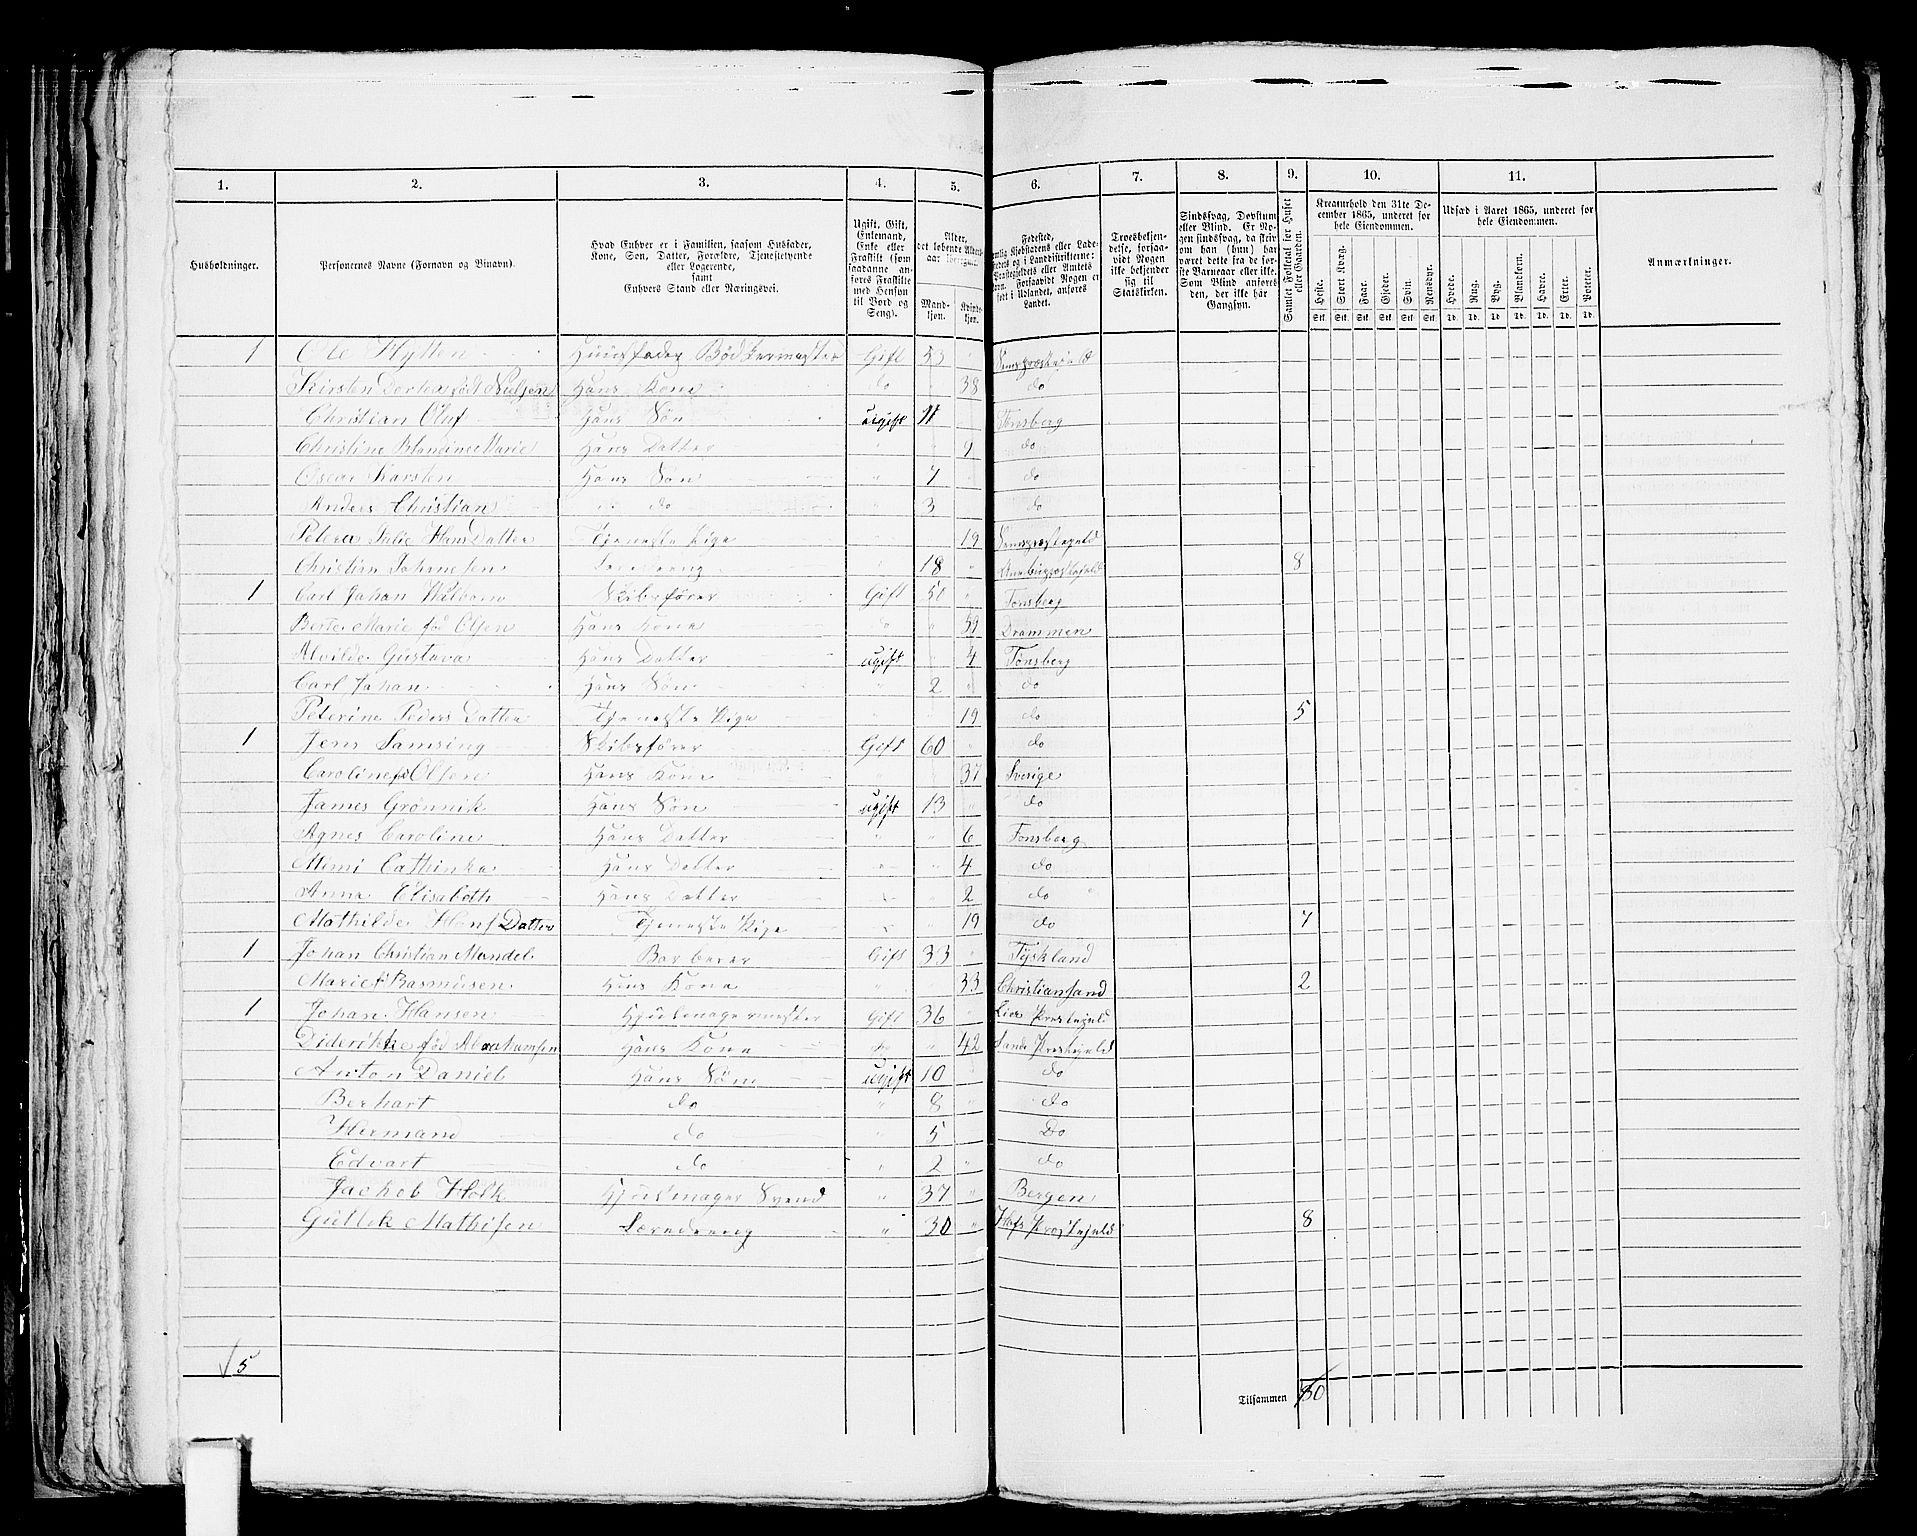 1. 2. 3. 4. 5. 6. 7. 8. 9. 10. 11.
Husholdninger.
Personernes Navne (Fornavn og Tilnavn).
Hvad Enhver er i Familien, saasom Husfader, Kone, Søn, Datter, Forældre, Tjenestetyende eller Logerende, samt Enhvers Stand eller Næringsvei.
Ugift, Gift, Enkemand, Enke eller Fraskilt (som saadanne anføres Fraskilte med Hensyn til Bord og Seng).
Alder, det løbende Alders-aar iberegnet. Mand-kjøn. Kvinde-kjøn.
Fødested,
Troesbekjendelse, forsaavidt Nogen ikke bekjender sig til Statskirken.
Sindssvag, Døvstum eller Blind. Er Nogen sindssvag, da skriv om han (hun) har været dette fra de første Barneaar eller ikke. Som Blind anføres den, der ikke har Gangsyn.
Samlet Folketal for Huset eller Gaarden.
Kreaturhold den 31te December 1865, underet for hele Eiendommen.
Heste. Stort Kvæg. Faar. Gjeder. Svin. Rensdyr.
Udsæd i Aaret 1865, underet for hele Eiendommen.
Hvede. Rug. Byg. Blandkorn. Havre. Erter. Poteter.
Anmærkninger.
1 Ole Hytten Huusfader Bødkermester Gift 53
Kirsten Dorthea født Nielsen Hans Kone do 38 do
Christian Oluf Hans Søn ugift 11 Tønsberg
Christine Blandine Marie Hans Datter 9 do
Oscar Karsten Hans Søn 7 do
Anders Christian do 3 do
Petera Julie Hans Datter Tjeneste Pige 19 Sems præstegjeld
Christian Johnnesen Læredreng 18 8
1 Carl Johan Skibsfører Gift 50 Tønsberg
Berte Marie fød Olsen Hans Kone do 39 Drammen
Alvilde Gustava Hans Datter ugift 4 Tønsberg
Carl Johan Hans Søn 2 do
Peterine Peders Datter Tjeneste Pige 19 do 5
1 Jens Samsing Skibsfører Gift 60 do
Caroline fd Olsen Hans Kone 37 Sverige
James Grønnik Hans Søn ugift 13 do
Agnes Caroline Hans Datter 6 Tønsberg
Mimi Cathinka Hans Datter 4 do
Anna Elisabeth Hans Datter 2 do
Mathilde Hans Datter Tjeneste Pige 19 do 7
1 Johan Christian Mandel Barberer Gift 33 Tyskland
Marie f Rasmusen Hans Kone 33 Christiansand 2
1 Johan Hansen Hjulmagermester Gift 36 Lier Prestegjeld
Diderikke fød Abrahamsen Hans Kone do 42 Sande Prestegjeld
Anton Daniel Hans Søn ugift 10 do
Berhart do 8 do
Hermand do 5 Do
Edvart do 2 do
Jachob Holk Hjulmager Svend 37 Bergen
Gullik Mathisen Læredreng 30 Hofs Præstegjeld 8
5
Tilsammen 30